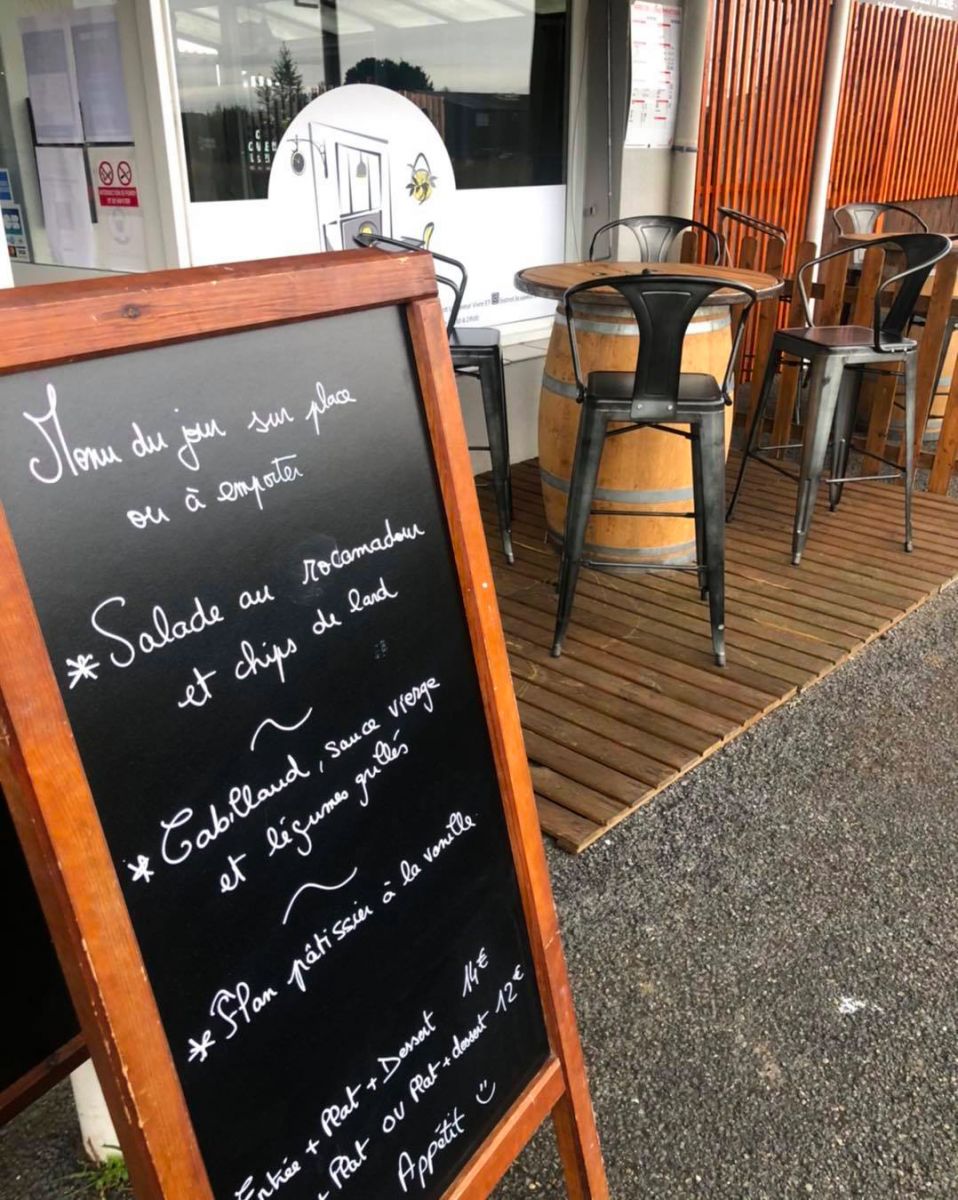 Menu du jour sur place
ou à emporter
* Salade au rocamadour
et chips de lard
~
* Cabillaud, sauce vierge
et légumes grillés
~
* Flan pâtissier à la vanille
Entrée + Plat + Dessert 14€
+ Plat OU Plat + dessert 12€
Appétit :)